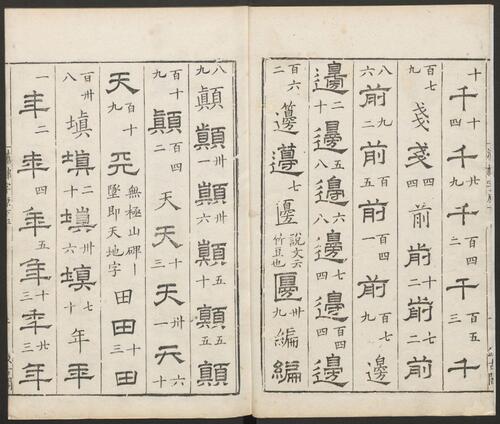 十千十四千卅九千四二千百五三千
百七九戔戔四前前十二前七二前
八六前九二前八五前百四一前百七九邊
邊二十邊五八邊六八邊七四邊百四四邊
百六二籩籩七邊說文云竹豆也卅九編編
八九顛顛卅一顛卅六顛五十顛五五顛
百十九顛百四二天天十三天卅一天六十
天百十九天無極山碑墜即天地字田田十三田
百卅八塡塡塡塡年年
一年二年四年五年十三年廿十年